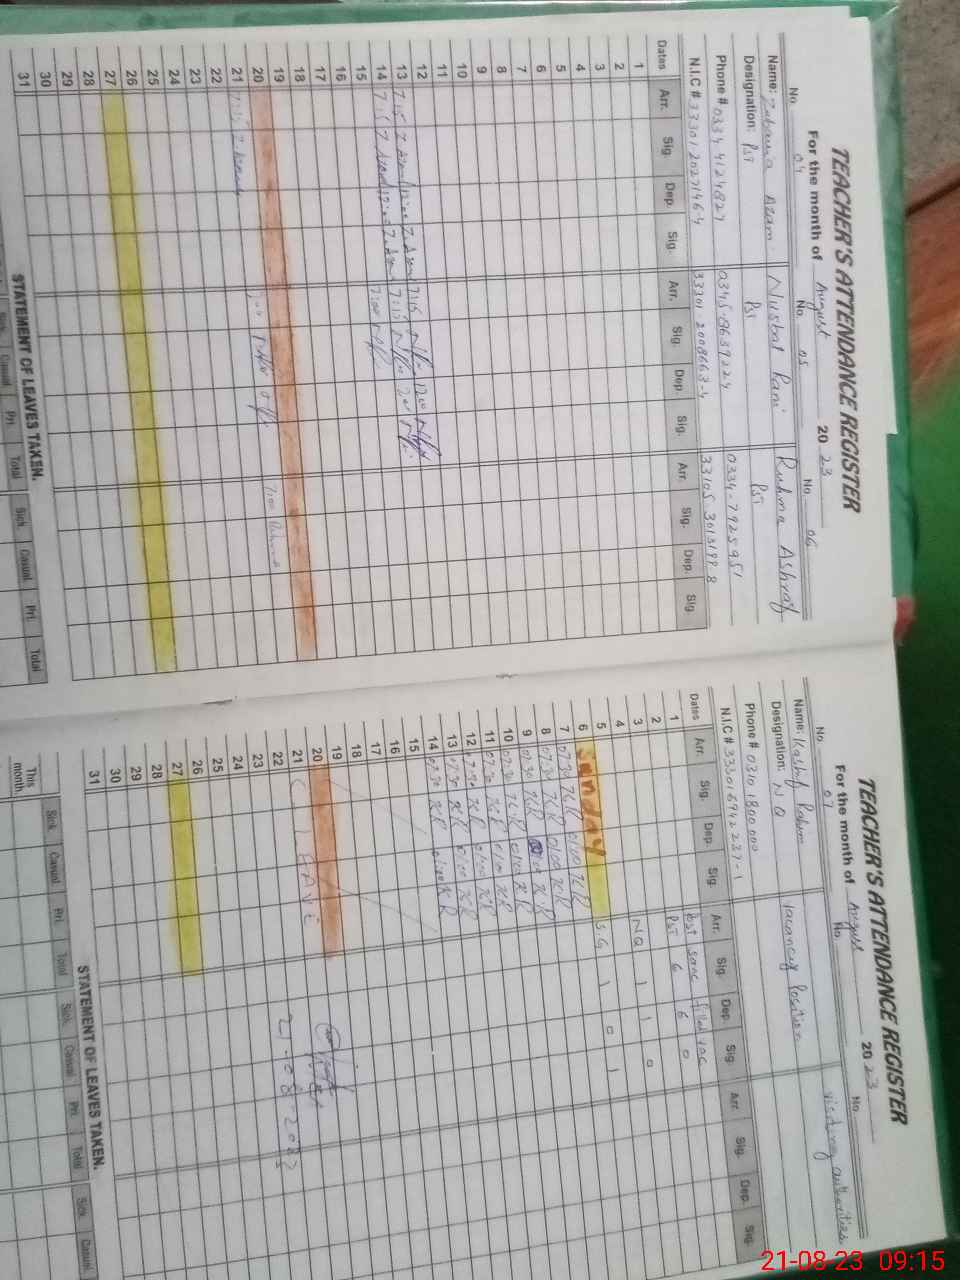 TEACHER'S ATTENDANCE REGISTER
For the month of August 2023
No. 04 No. 05 No. 06
Name: Zubaria Azam Nusrat Rani Rukma Ashraf
Designation: PST PST PST
Phone # 0334 4124827 0345-8639224 0334-7925951
Dates Arr. Sig. Dep. Sig. Arr. Sig. Dep. Sig. Arr. Sig. Dep. Sig.
1
2
3
4
5
6
7
8
9
10
11
12 7:15 Z.Azam 12:00 Z.Azam 7:15 1200
13 7:15 Z.Azam 12:00 Z.Azam 7:15
14 7:00
15
16
17
18
19 7:00
20
21 7:15 Z.Azam
22
23
24
25
26
27
28
29
30
31
STATEMENT OF LEAVES TAKEN.
Sick Casual Pri. Total Sick Casual Pri. Total
TEACHER'S ATTENDANCE REGISTER
For the month of August 2023
No. 07 No. No.
Name: Kashif Rahim Vacancy Position visiting authorities
Designation: N Q
Phone # 0310 1800000
N.I.C # 33301 6942237-1
Dates Arr. Sig. Dep. Sig. Arr. Sig. Dep. Sig. Arr. Sig. Dep. Sig.
1 PST 6 6 0
2
3 NQ 1 1 0
4
5 S.G 1 0 1
6 Sunday
7 07:30 K.R 01:00 K.R
8 07:30 K.R 01:00 K.R
9 07:30 K.R K.R
10 07:30 K.R 01:00 K.R
11 07:30 K.R 01:00 K.R
12 07:30 K.R 01:00 K.R
13 07:30 K.R 01:00 K.R
14 07:30 K.R 01:00 K.R
15
16
17
18
19
20
21 C LEAVE
22 21-08-2023
23
24
25
26
27
28
29
30
31
STATEMENT OF LEAVES TAKEN.
Sick Casual Pri. Total Sick Casual Pri. Total Sick Casual
This month.
21-08-23 09:15